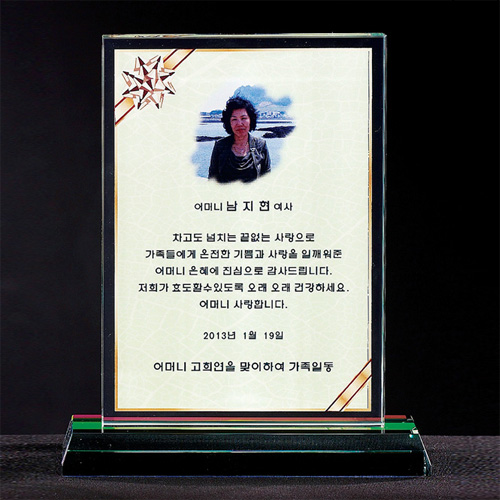 어머니 남 지 현 여사
차고도 넘치는 끝없는 사랑으로
가족들에게 온전한 기쁨과 사랑을 일깨워준
어머니 은혜에 진심으로 감사드립니다.
저희가 효도할수있도록 오래 오래 건강하세요.
어머니 사랑합니다.
2013년 1월 19일
어머니 고희연을 맞이하여 가족일동